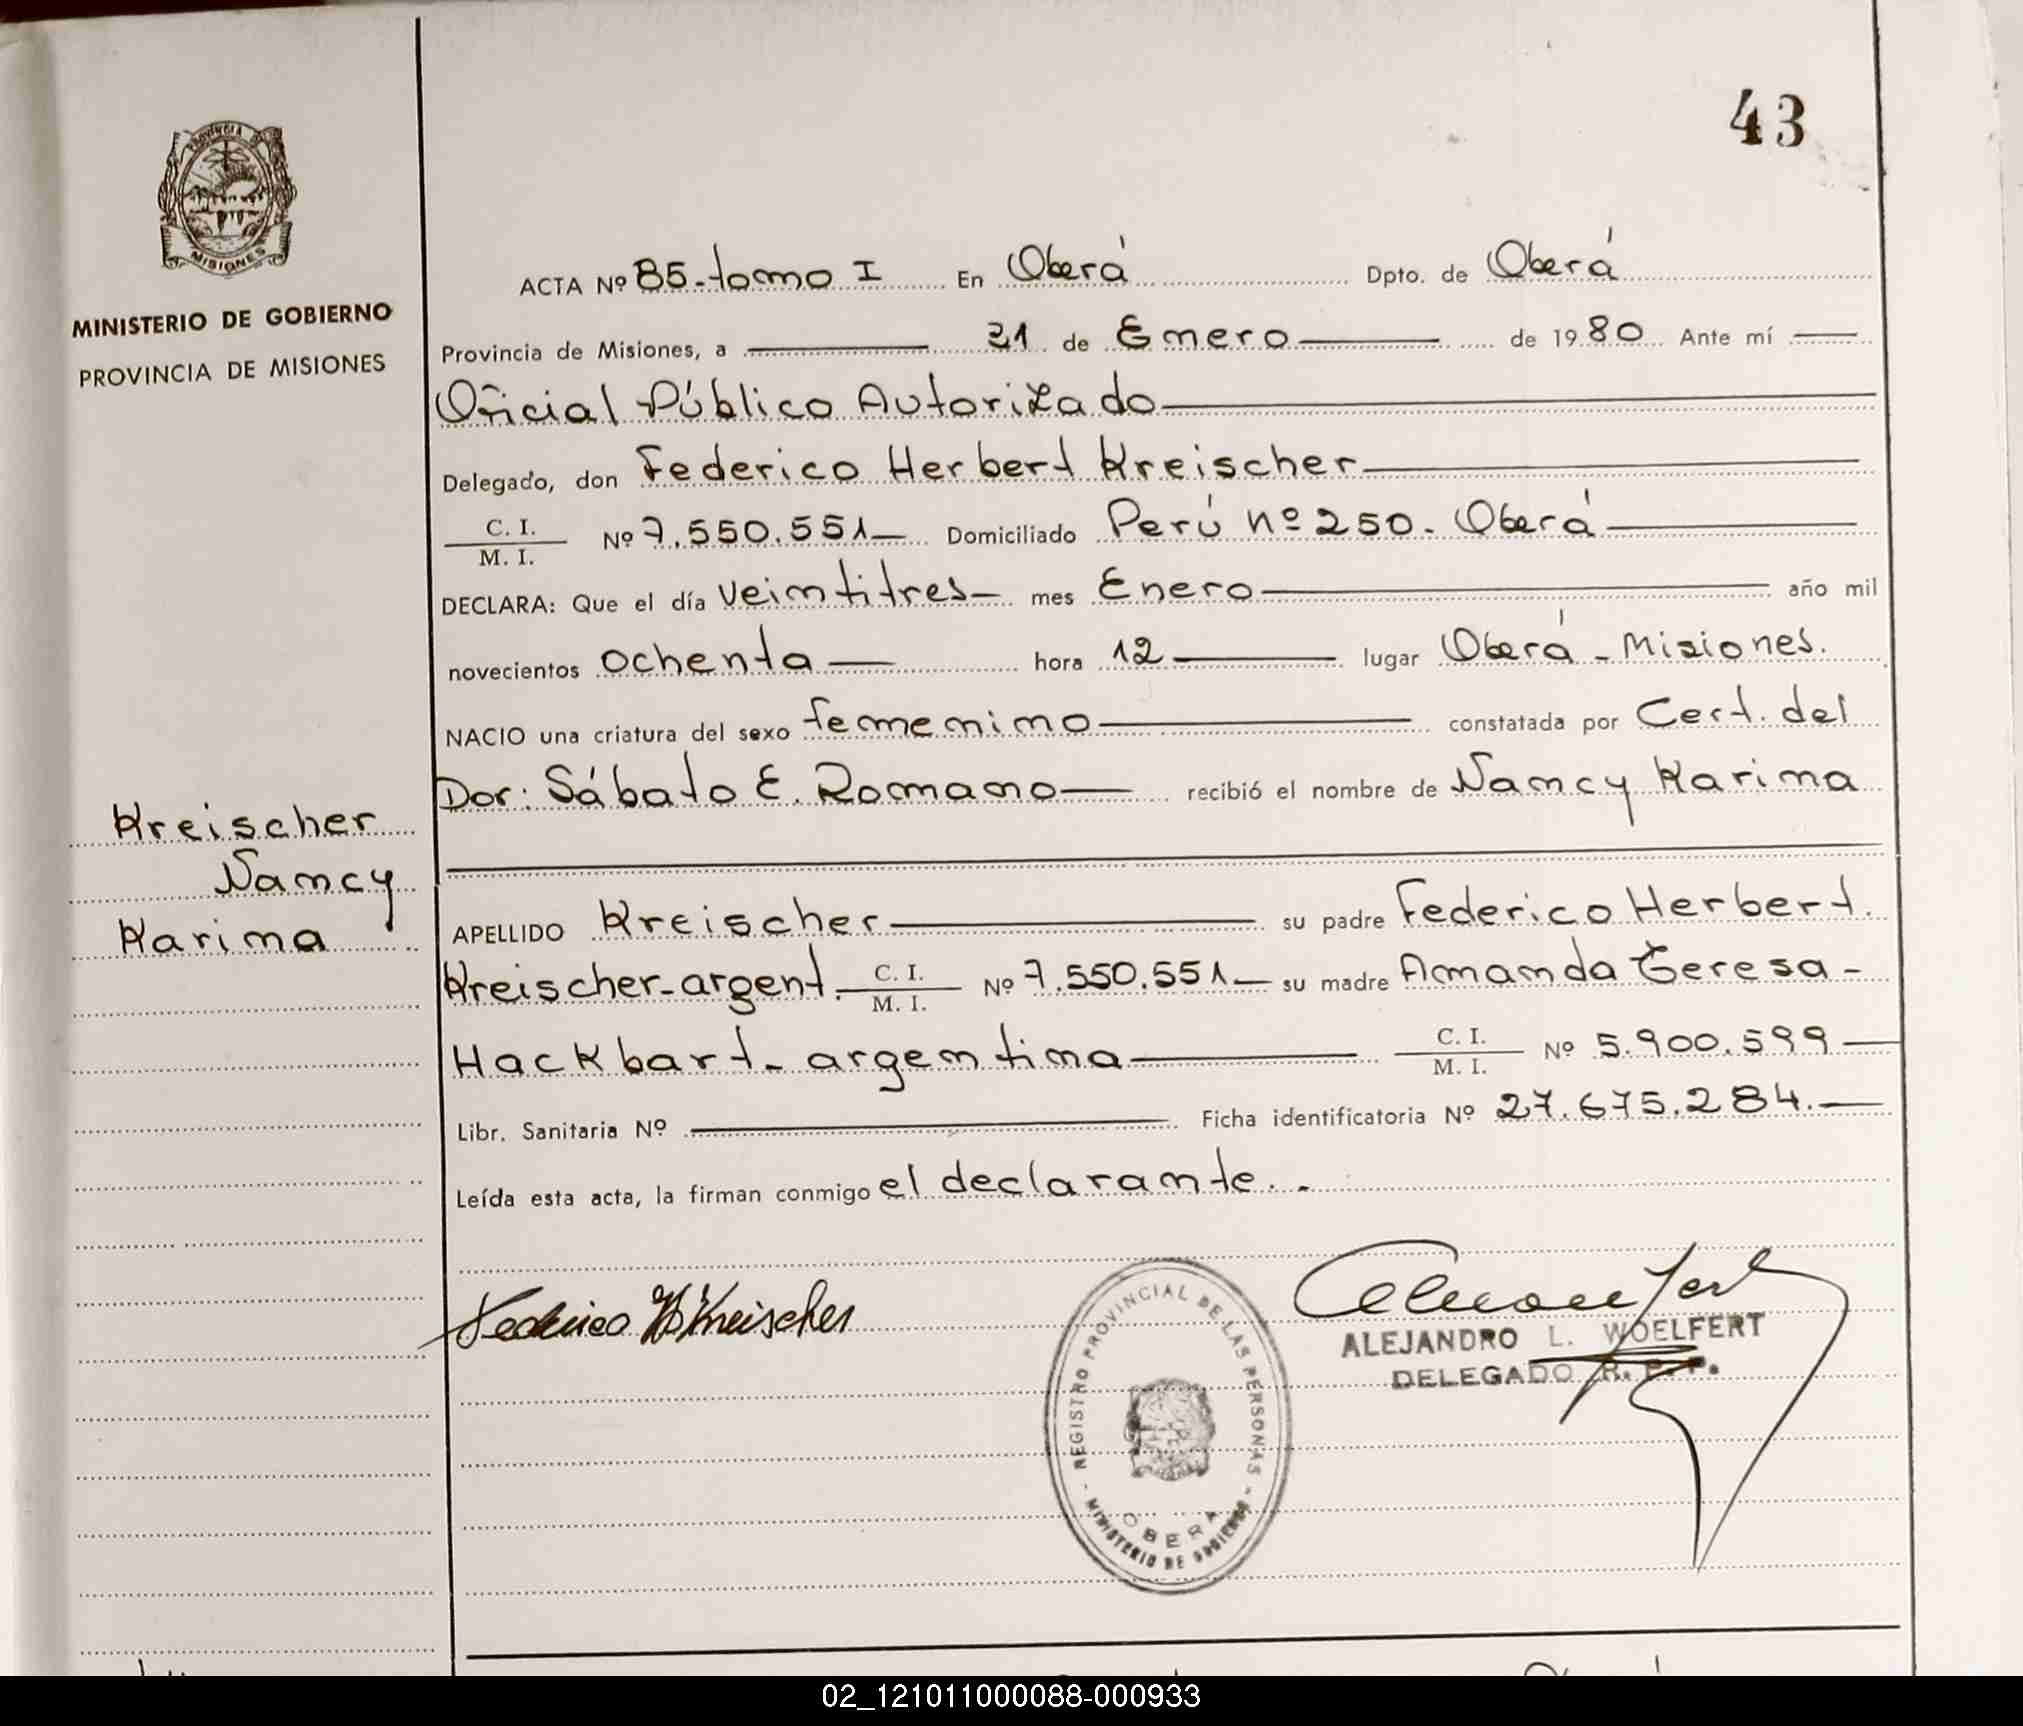 43
PROVINCIA
MISIONES
MINISTERIO DE GOBIERNO
PROVINCIA DE MISIONES
Kreischer
Nancy
Karina
ACTA Nº 85-tomo I En Oberá Dpto. de Oberá
Provincia de Misiones, a 31 de Enero de 1980 Ante mí
Oficial Público Autorizado
Delegado, don Federico Herbert Kreischer
C. I.
M. I. Nº 7.550.551 Domiciliado Perú nº 250. Oberá
DECLARA: Que el día veintitres mes Enero año mil
novecientos ochenta hora 12 lugar Oberá - Misiones.
NACIO una criatura del sexo femenino constatada por Cert. del
Dor: Sábato E. Romano recibió el nombre de Nancy Karina
APELLIDO Kreischer su padre Federico Herbert
Kreischer-argent. C. I. M. I. Nº 7.550.551 su madre Amanda Teresa
Hackbart - argentina C. I. M. I. Nº 5.900.599
Libr. Sanitaria Nº Ficha identificatoria Nº 27.675.284.
Leída esta acta, la firman conmigo el declarante.
Federico H Kreischer
REGISTRO PROVINCIAL DE LAS PERSONAS
OBERA
MINISTERIO DE GOBIERNO
ALEJANDRO L. WOELFERT
DELEGADO R. P. P.
02_121011000088-000933